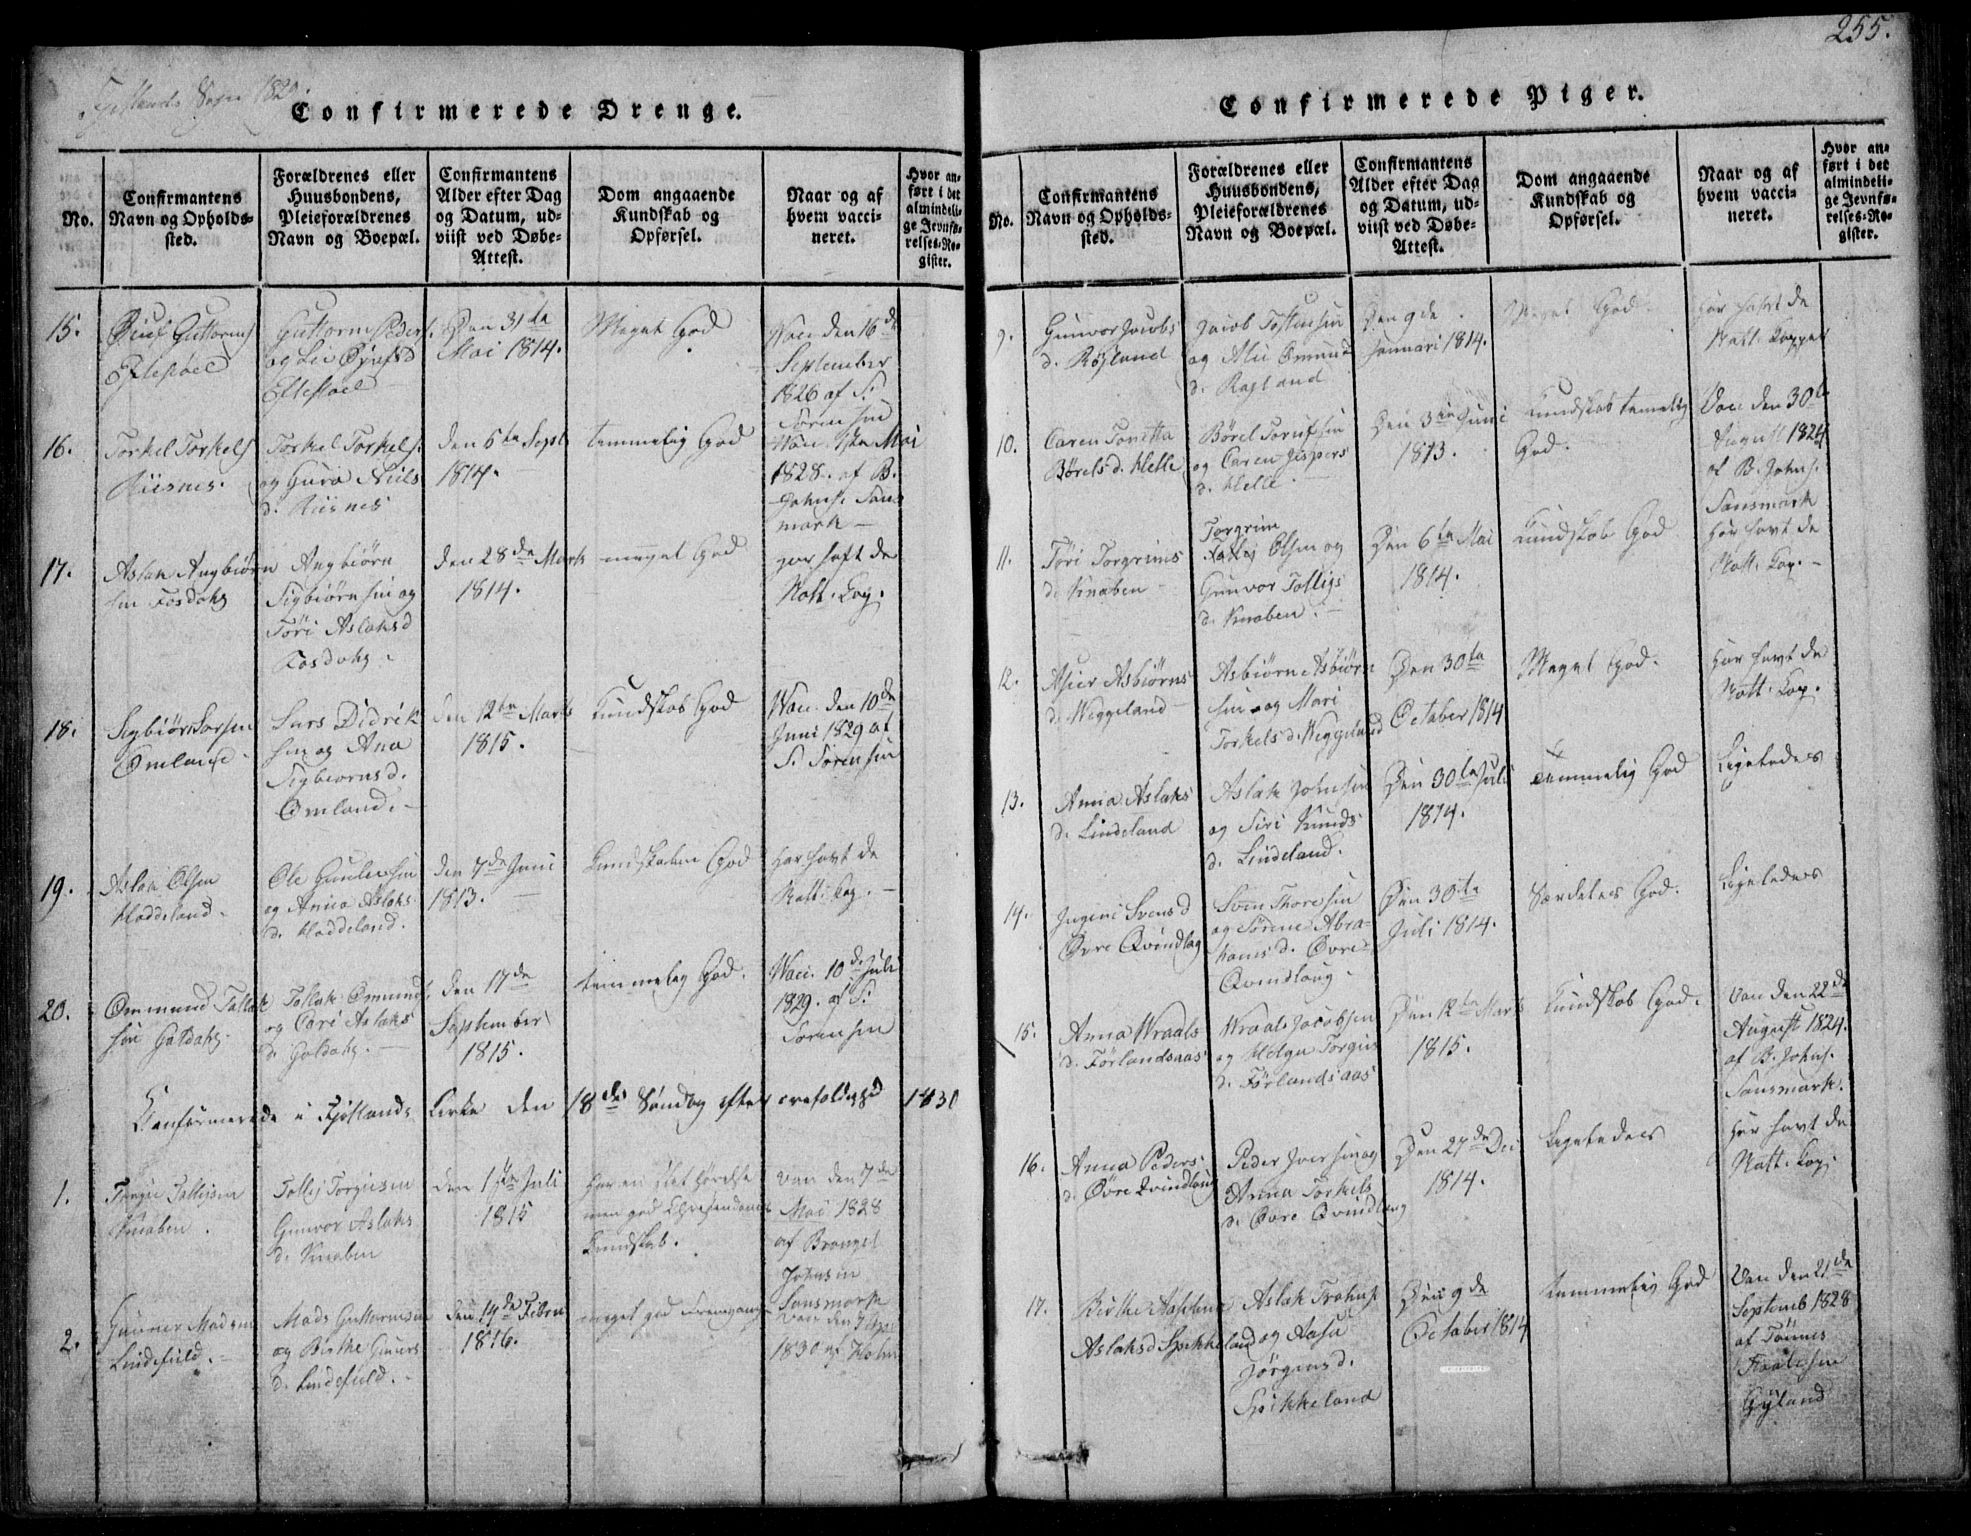 255.
Fjotlands Sogn 1829
Confirmerede Drenge.
No.
Confirmantens
Navn og Opholds-
sted.
Forældrenes eller
Huusbondens,
Pleieforældrenes
Navn og Boepæl.
Confirmantens
Alder efter Dag
og Datum, ud-
viist ved Døbe-
Attest.
Dom angaaende
Kundskab og
Opførsel.
Naar og af
hvem vacci-
neret.
Hvor an-
ført i det
almindeli-
ge Jevnfø-
relses-Re-
gister.
15.
Guttorms
Eftestøel
Guttorm Peders.
og Liv
Eftestoel
Den 31te
Mai 1814.
Meget God
Vac. den 16de
September
1826 af S.
Sørensen
16.
Torkel Torkels
Riisnes.
Torkel Torkels.
og Guro Niels
d. Riisnes
den 5te Sept
1814.
temmelig God
Mai
1828. af B.
Johns. San-
mork
17.
Aslak Angbiørn
sen Fosdahg
Angbiørn
Sigbiørnsen og
Tøri Aslaksd
Fosdahg.
den 28de Mark
1814.
meget God
har haft de
Natt. Kop.
18.
Sigbiør Larsen
Omland
Lars Didrik
sen og Ana
Sigbiornsd.
Omland.
den 12te Marts
1815.
Kundskab God
Vac. den 10de
Juni 1829 af
S. Sørensen
19.
Aslak Olsen
Haddeland.
Ole Gunlevsen
og Anna Aslaks
d. Haddeland.
den 7de Juni
1813.
Kundskaben God
har havt de
Natt. Kop.
20.
Ommund Tallak
sen Galdahg.
Tallak Omunds.
og Cari Aslaks
d. Galdahg.
den 17de
September
1815.
temmelig God.
Vaci. 10de Juli
1829. af S.
Sørensen
Confirmerede i Fjotlands Kirke den 18de Søndag efter 1830
1.
Torgie Tallisen
Knaben.
Tollig Torgiesen
Gunvor Aslaks
d. Knaben
den 1ste Juli
1815
har en slet
men god Christendoms
Kundskab.
Van den 7de
Mai 1828
af
Johnsen
Sansmork
2.
Gunner Madsen
Lindefield.
Mads Guttormsen
og Birthe Guners
d. Lindefield.
den 14de Febru
1816.
meget god Fremgang
Vac den 7
1830 af Holm
Confirmerede Piger.
No.
Confirmantens
Navn og Opholds-
sted.
Forældrenes eller
Huusbondens,
Pleieforældrenes
Navn og Boepæl.
Confirmantens
Alder efter Dag
og Datum, ud-
viist ved Døbe-
Attest.
Dom angaaende
Kundskab og
Opførsel.
Naar og af
hvem vacci-
neret.
Hvor an-
ført i det
almindeli-
ge Jevnfø-
relses-Re-
gister.
9.
Gunvor Jacobs
d. Røjland
Jacob Tostensen
og Alis Omund
d. Røjland
Den 9de
Januari 1814.
Meget God.
har havt de
Natt. Kopper
10.
Caren Tonetta
Børels d. Helle
Børel Torufsen
og Caren Jespers
d. Helle.
Den 3die Juni
1813.
Kundskab temmelig
God.
Van den 30te
August 1824
af B. Johns.
Sansmark
11.
Tøri Torgrims
d. Knaben
Torgrim
Olsen og
Gunvor Tolligs
d. Knaben.
Den 6te Mai
1814.
Kundskab God
har havt de
Natt. Kop.
12.
Asier Asbiørns
d. Weggeland
Asbiørn Asbiørn
sen og Mari
Torkels d. Weggeland
Den 30te
October 1814
Meget God.
har havt de
Natt. Kop.
13.
Anna Aslaks
d. Lindeland
Aslak Johnsen
og Siri Knuds
d. Lindeland.
Den 30te Juli
1814.
Temmelig God
Ligeledes
14.
Ingeni Svensd
Øvre Qvindlog
Sven Thoresen
og Sørine Abra-
hams d. Øvre
Qvindloug.
Den 30te
Juli 1814.
Særdeles God.
Ligeledes
15.
Anna Wraals
d. Førlandsaas
Wraals Jacobsen
og Helga Torgus
d. Førlandsaas
Den 12te Marts
1815.
Kundskab God.
Van den 22de
August 1824.
af B. Johns.
Sansmark.
16.
Anna Peders
d. Øvre Qvindloug
Peder Iversen og
Anna Torkels
d. Øvre Qvindloug
Den 27de Dec
1814.
Ligeledes
har havt de
Natt. Kop.
17.
Birthe
Aslaksd Spikkeland
Aslak
og Aasa
Jørgensd.
Spikkeland
Den 9de
October 1814
temmelig God
Van den 21de
Septemb 1828
af Tønnes
Gyland